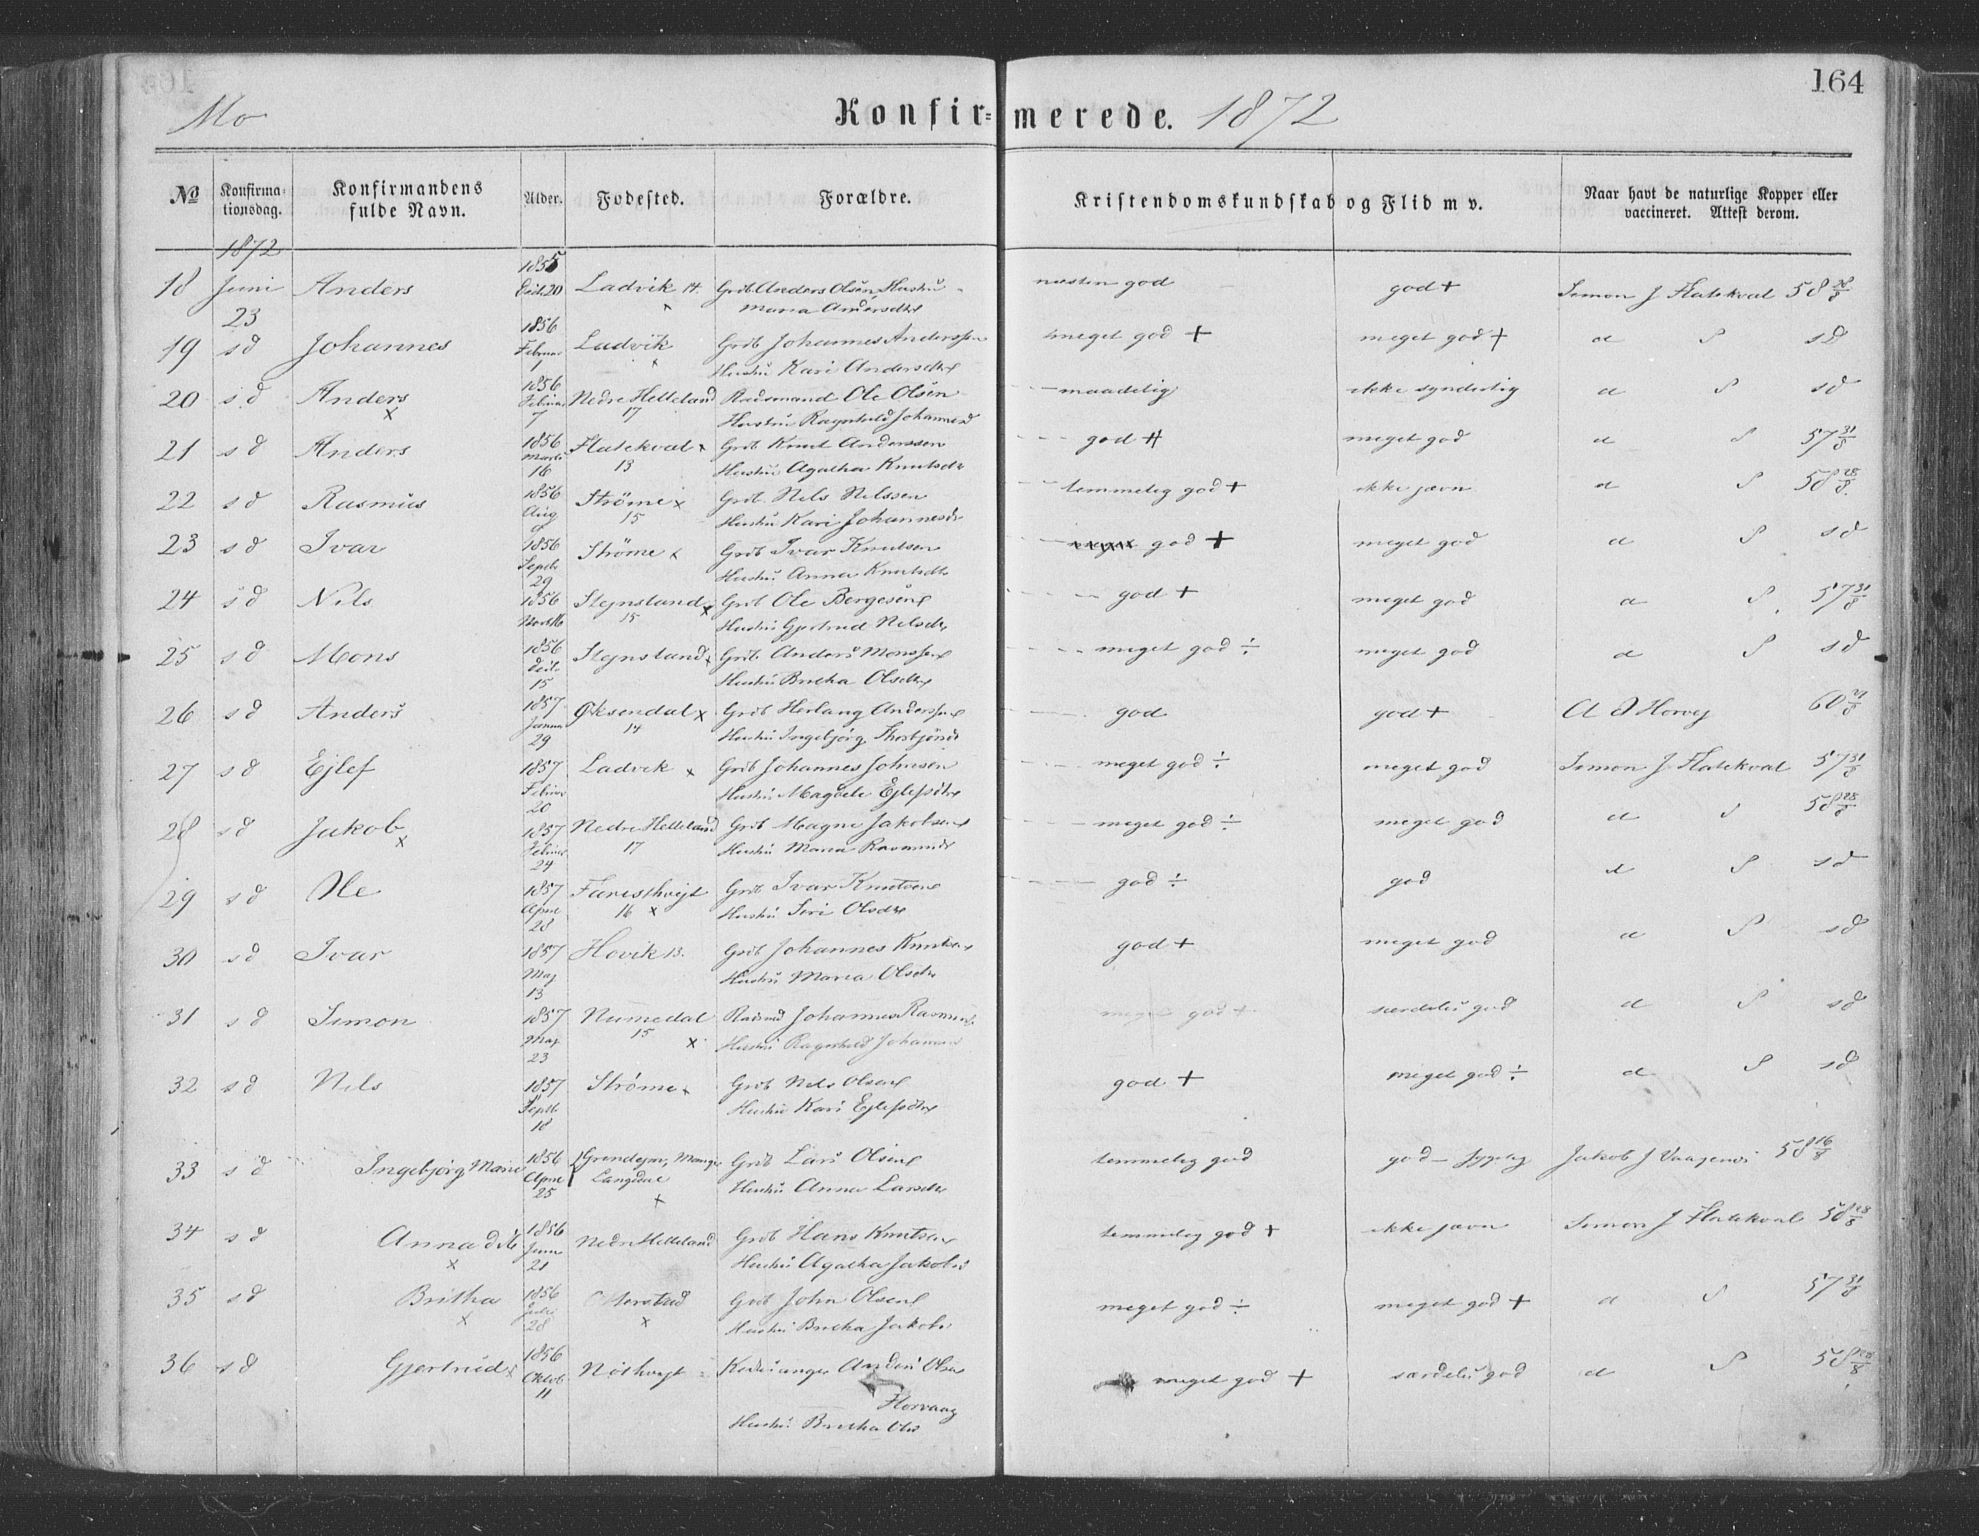 164
Mo
Konfirmerede. 1872
No Konfirmationsdag. Konfirmandens fulde Navn. Alder. Fødested. Forældre. Kristendomskundskab og Flid m v. Naar havt de naturlige Kopper eller vaccineret. Attest derom.
1872
18 Juni 23 Anders 1855 20 Ladvik 14. Grdb Anders Olsen Hustru Maria Andersdtr næsten god god + Simon J Flatekval 58 28/8
19 s d Johannes 1856 Februar 7 Ladvik x Grdb Johannes Anderssen Hustru Kari Andersdtr meget god + meget god + d S s d
20 s d Anders x 1856 Februar 7 Nedre Helleland 17 Ole Olsen Hustru Ragnhild Johannesd maadelig ikke synderlig d S s d
21 s d Anders 1856 Marts 16 Flatekval x 13 Grdb Knut Anderssen Hustru Agatha Knutsdtr god + meget god d S 57 31/8
22 s d Rasmus 1856 Aug Ströme x 15 Grdb. Nils Nilssen Hustru Kari Johannesdr temmelig god + ikke jævn d S 58 28/8
23 s d Ivar 1856 Septb 29 Ströme x Grdb Ivar Knutsen Hustru Anna Knutsdtr god + meget god d S s d
24 s d Nils 1856 Novb 16 Stejnsland x 15 Grdb Ole Bergesen Hustru Gjertrud Nilsdtr god + meget god d S 57 31/8
25 s d Mons 1856 Decb. 15 Stejnsland x Grdb. Anders Monssen Hustru Britha Olsdtr meget god ÷ meget god d S s d
26 s d Anders 1857 Januar 29 Øksendal x 14 Grdb Herlaug Anderssen Hustru Ingebjörg god god + A Horvej 60 /8
27 s d Ejlef 1857 Februar 20 Ladvik x Grdb Johannes Johnsen Hustru Magdele Ejlefsdtr meget god ÷ meget god Simon J Flatekval 57 31/8
28 s d Jakob x 1857 Februar 24 Nedre Helleland 17 Grdb Magne Jakobsen Hustru Maria Rasmusdr meget god ÷ meget god d S 58 28/8
29 s d Ole 1857 April 28 16 x Grdb Ivar Knutsen Hustru Siri Olsdtr god ÷ god d S s d
30 s d Ivar 1857 Maj 13 Hovik 13. Grdb Johannes Knutsen Hustru Maria Olsdtr god + meget god d S s d
31 s d Simon 1857 Maj 23 Numedal 15 x Johannes Rasmus Hustru Ragnhild Johannes meget god + særdeles god d S s d
32 s d Nils 1857 Septb. 18 Ströme x Grdb Nils Olsen Hustru Kari Ejlefsdtr god + meget god ÷ d S s d
33 s d Ingebjörg Marie 1856 April 25 Langedal x Grdb Lars Olsen Hustru Anna Larsdtr temmelig god god – Jakob J 58 16/8
34 s d Anna x 1856 Juni 21 Nedre Helleland Grdb Hans Knutsen Hustru Agatha Jakobs temmelig god + ikke jævn Simon J Flatekval 58 28/8
35 s d Britha x 1856 Juli 28 x Grdb John Olsen Hustru Britha Jakobs meget god ÷ meget god + d S 57 31/8
36 s d Gjertrud x 1856 Oktob 11 Anders Olsen Horvaag Hustru Britha Ols meget god + særdeles god d S 58 28/8